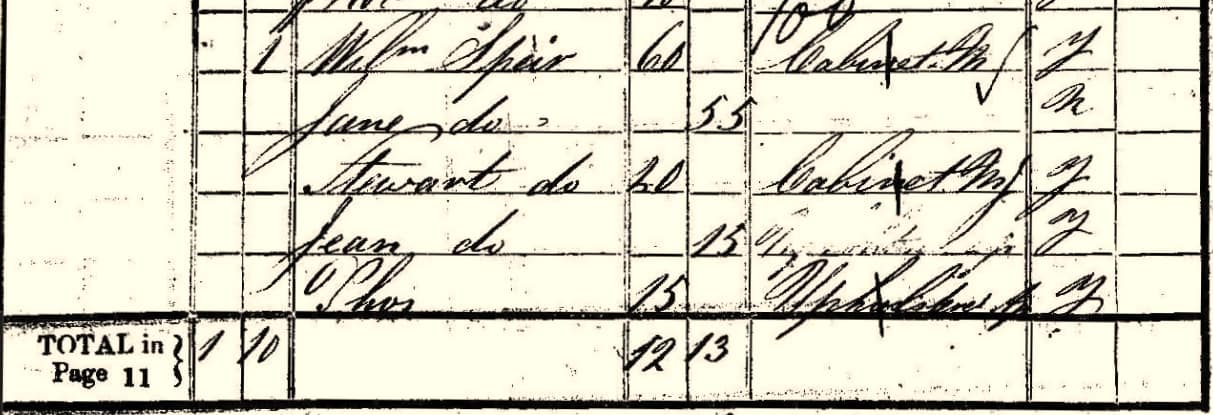 1 Wilm Speir 60 Cabinet M J Y
Jane do 55 N
Stewart do 20 Cabinet M J Y
Jean do 15 Y
Thos 15 Upholsterer Ap Y
TOTAL in Page 11 } 1 10 12 13